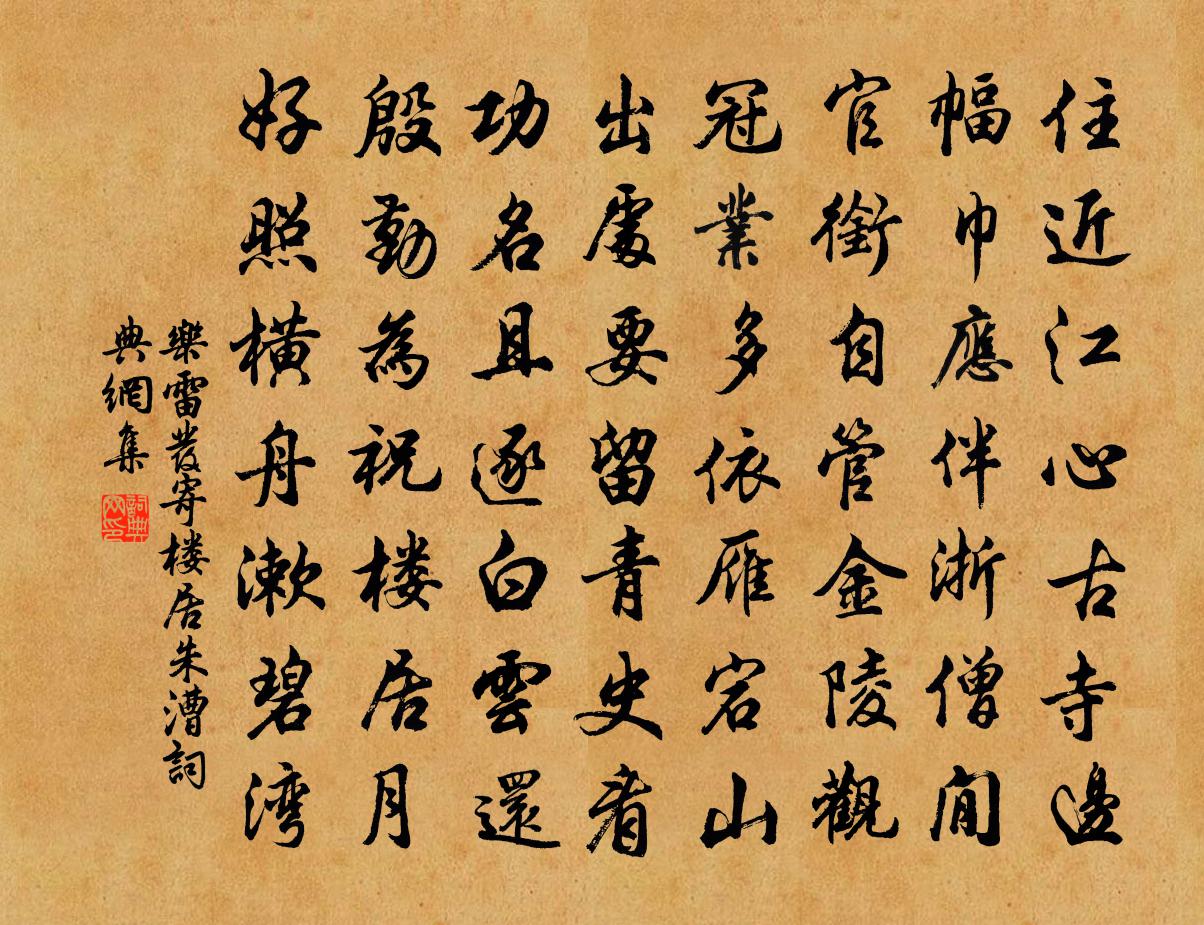 住近江心古寺邊
幅巾應伴浙僧閒
官銜自管金陵觀
冠業多依雁宕山
出處要留青史看
功名且逐白雲還
殷勤為祝楼居月
好照橫舟漱碧湾
樂雷發寄楼居朱漕詞
典網集
詞典
网印